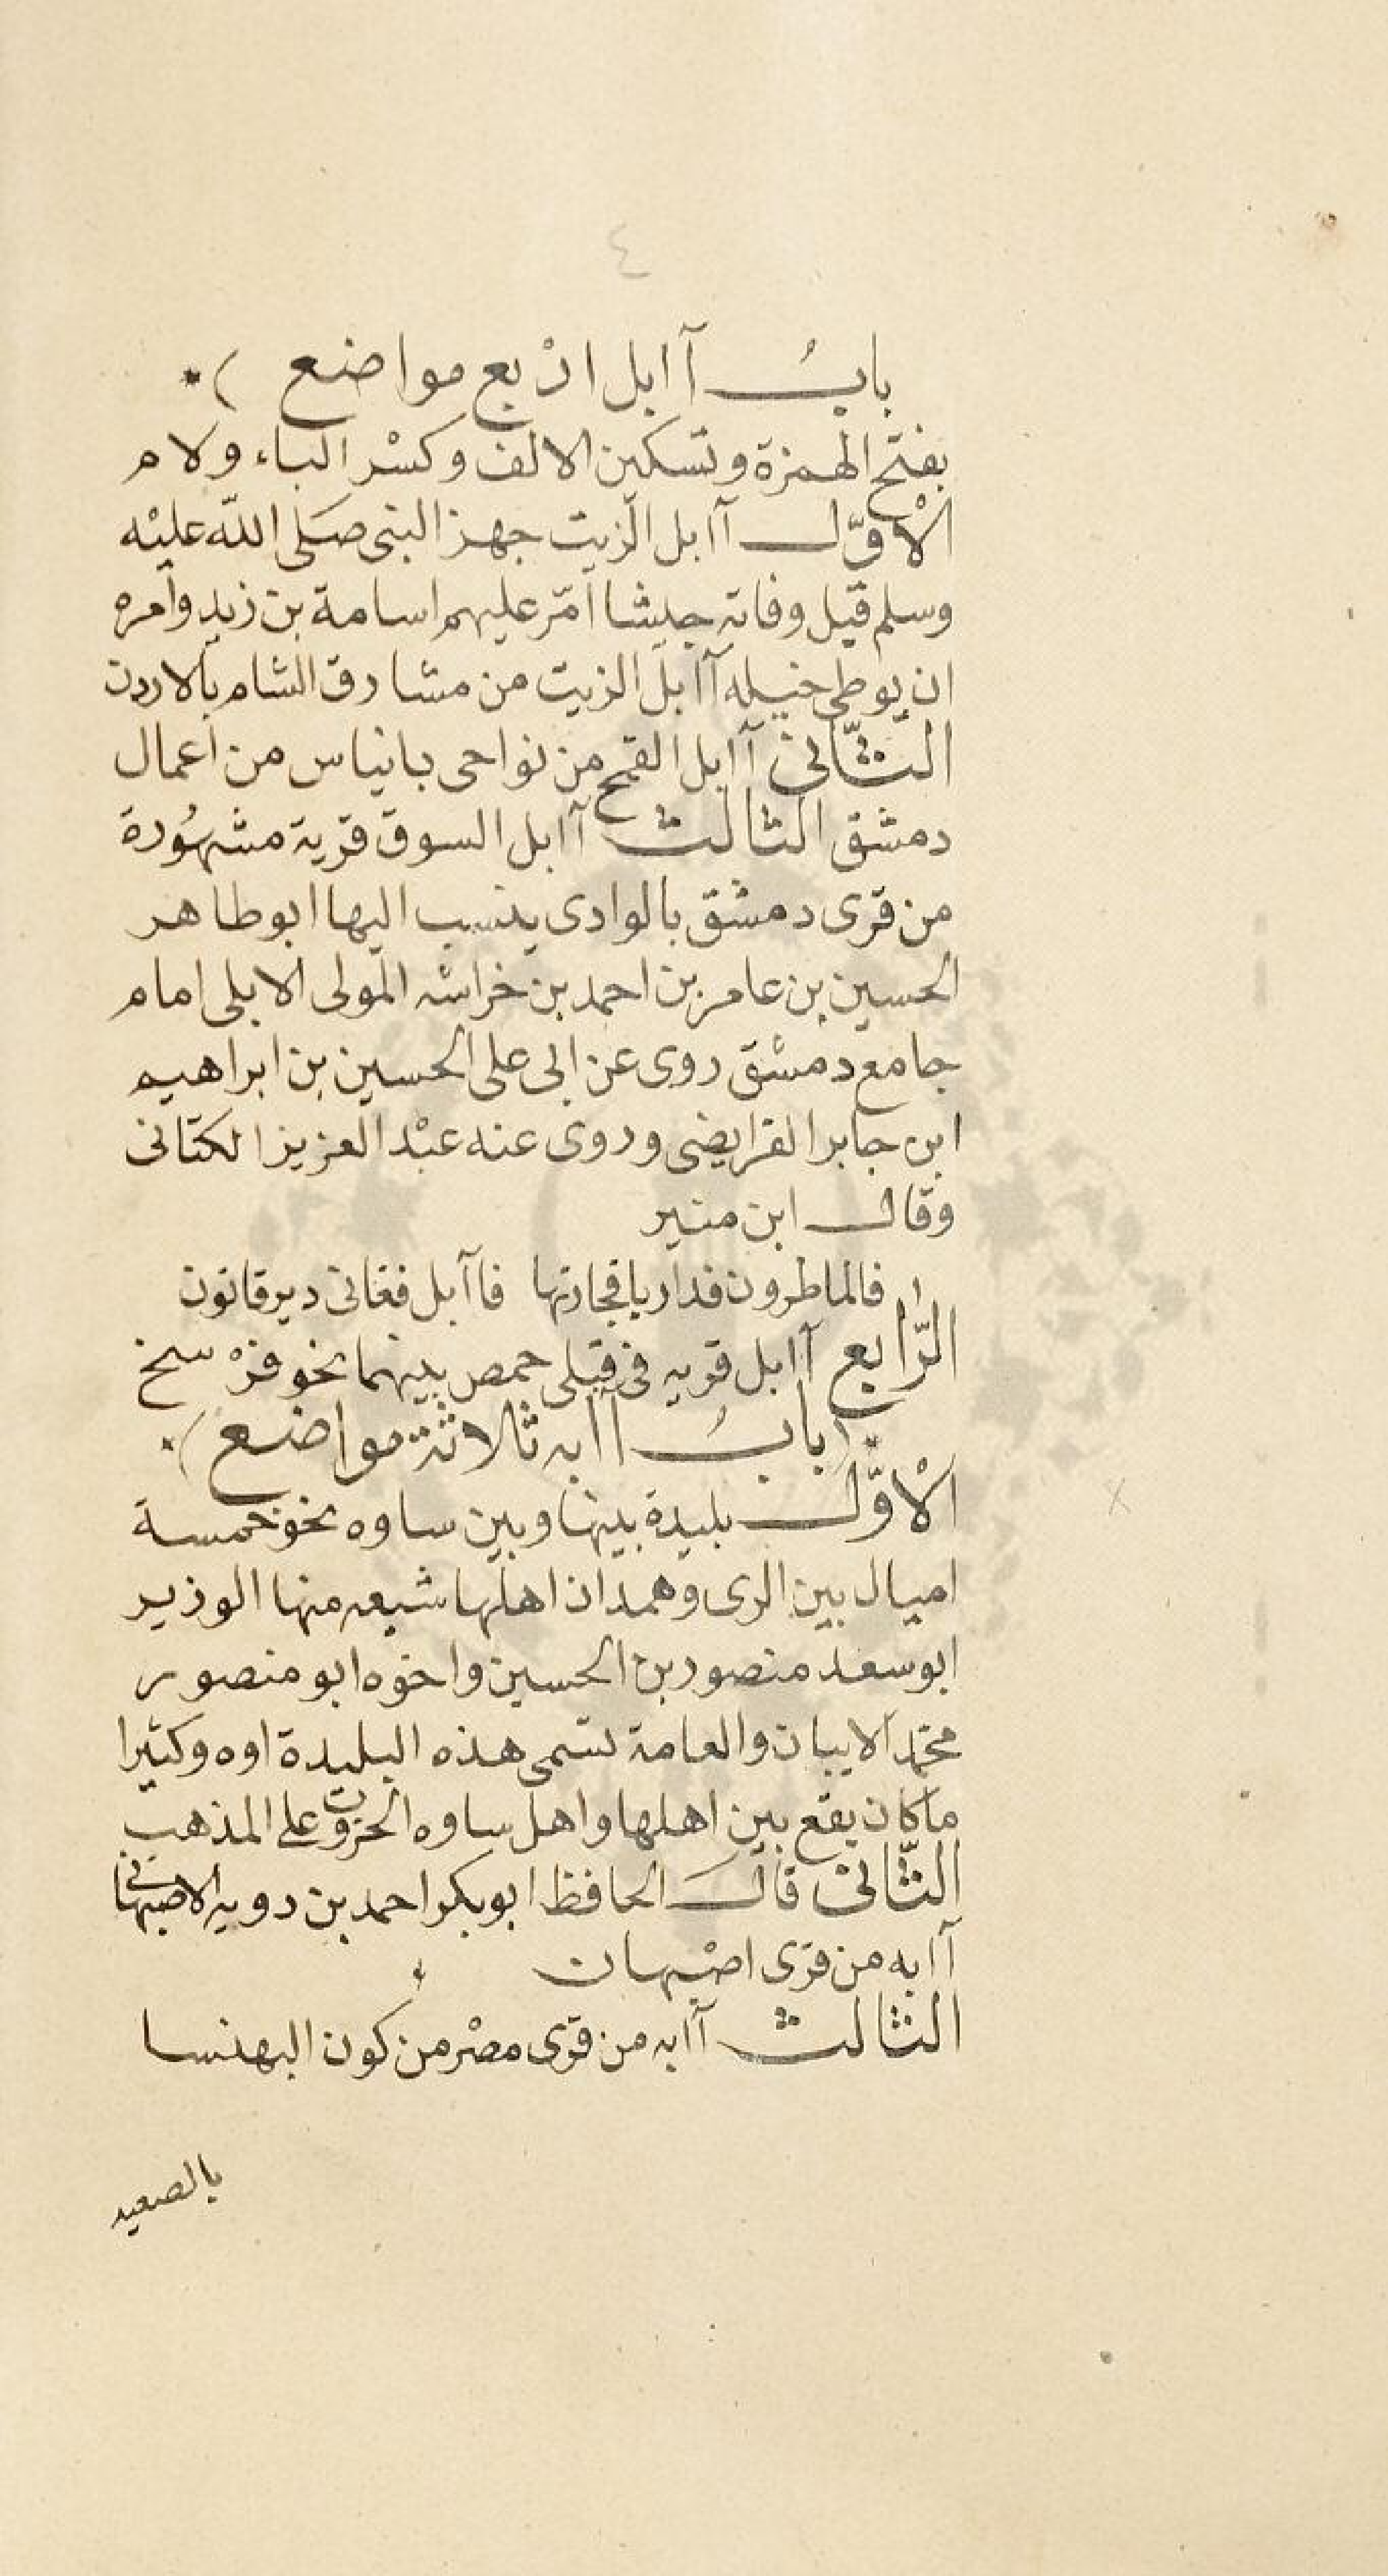 ٤
بابُ آابل ارْبع مواضع )*
بفتح الهمزة وتسكين الالف وكسْر الباء ولام
الْاوّل آابل الزيت جهز النبى صَلى اللّه عليْه
وسلم قبل وفاته جيشا امّر عليهم اسامة بن زيد وامره
ان يوطى خيله آابل الزيت من مشارق الشام بالاردن
الثّانى آابل القمح من نواحى بانياس من اعمال
دمشق الثالث آابل السوق قرية مشهُورة
من قرى دمشق بالوادى ينسب اليها ابو طاهر
الحسين بن عامر بن احمد بن خراشه المولى الابلى امام
جامع دمشق روى عن ابى على الحسين بن ابراهيم
ابن جابر القرايضى وروى عنه عبْد العزيز الكتانى
وقال ابن منير
فالماطرون فداريا فجارتها فاآبل فغانى دير قانون
الرّابع آابل قريه فى قبلى حمص بينهما نحو فرْسخ
(بابُ آابه ثالاثة مواضع )*
الْاوّل بليدة بينها وبين ساوه نحو خمسة
اميال بين الرى وهمدان اهلها شيعه منها الوزير
ابو سعد منصور بن الحسين واخوه ابو منصور
محمّد الابيان والعامة تسمى هذه البليدة اوه وكثيرا
ما كان يقع بين اهلها واهل ساوه الحروب على المذهب
الثّانى قال الحافظ ابو بكر احمد بن دويه الاصبهانى
آابه من قرى اصْبهان
الثالث آابه من قرى مصْر من كون البهنسا
بالصعيد